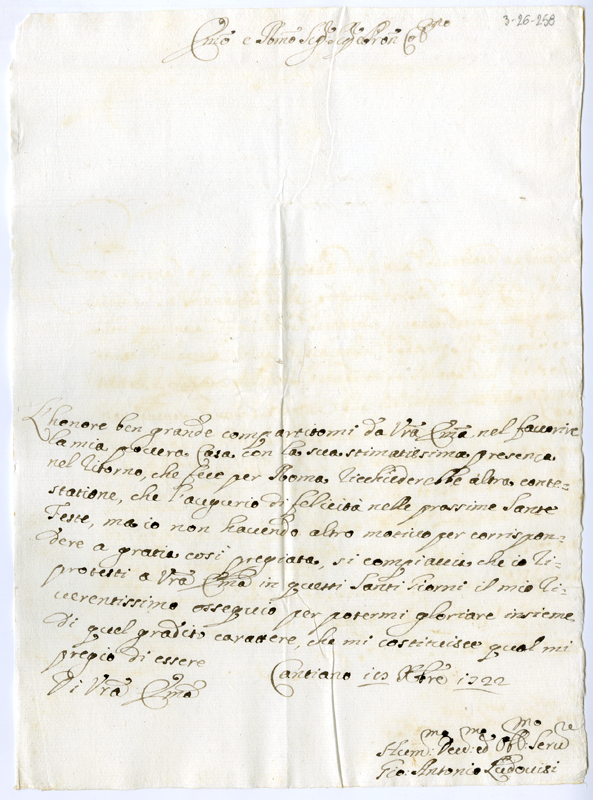 3-26-258
Emo e Rmo Sigr Sigr e Pron Colmo
L'honore ben grande compartitomi da Vra Emza nel favorire
la mia povera Casa con la sua stimatissima presenza
nel ritorno, che fece per Roma richiederebbe altra conte=
statione, che l'augurio di felicità nelle prossime Sante
Feste, ma io non havendo altro motivo per corrispon=
dere a gratia così pregiata, si compiaccia che io ri=
protesti a Vra Emza in questi Santi Giorni il mio ri=
verentissimo ossequio per potermi gloriare insieme
di quel gradito carattere, che mi costituisce qual mi
pregio di essere
Di Vra Emza
Cantiano Xbre 1722
Hum: mo Dev: mo ed Obb: mo Serv re
Gio: Antonio Ludovisi